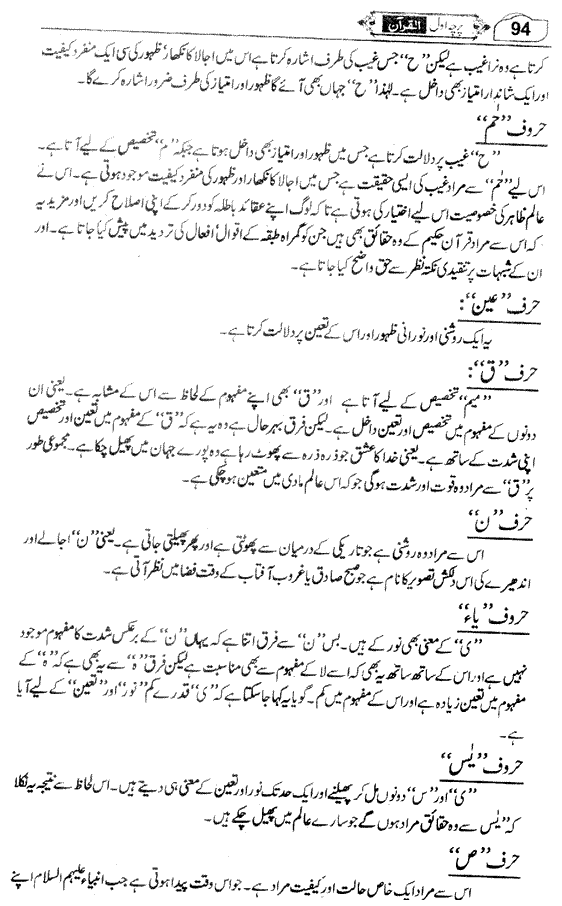 94 پرچہ اول القرآن
کرتا ہے وہ نرا غیب ہے لیکن ’’ح‘‘ جس غیب کی طرف اشارہ کرتا ہے اس میں اجالا کا نکھار‘ ظہور کی سی ایک منفرد کیفیت
اور ایک شاندار امتیاز بھی داخل ہے۔ لہٰذا ’’ح‘‘ جہاں بھی آئے گا ظہور اور امتیاز کی طرف ضرور اشارہ کرے گا۔
حروف ’’حٰم‘‘
’’ح‘‘ غیب پر دلالت کرتا ہے جس میں ظہور اور امتیاز بھی داخل ہوتا ہے جبکہ ’’م‘‘ تخصیص کے لیے آتا ہے۔
اس لیے ’’حٰم‘‘ سے مراد غیب کی ایسی حقیقت ہے جس میں اجالا کا نکھار اور ظہور کی منفرد کیفیت موجود ہوتی ہے۔ اس نے
عالم ظاہر کی خصوصیت اس لیے اختیار کی ہوتی ہے تاکہ لوگ اپنے عقائد باطلہ کو دور کر کے اپنی اصلاح کریں اور مزید یہ
کہ اس سے مراد قرآن حکیم کے وہ حقائق بھی ہیں جن کو گمراہ طبقہ کے اقوال‘ افعال کی تردید میں پیش کیا جاتا ہے۔ اور
ان کے شبہات پر تنقیدی نکتہ نظر سے حق واضح کیا جاتا ہے۔
حرف ’’عین‘‘:
یہ ایک روشنی اور نورانی ظہور اور اس کے تعین پر دلالت کرتا ہے۔
حرف ’’ق‘‘:
’’میم‘‘ تخصیص کے لیے آتا ہے اور ’’ق‘‘ بھی اپنے مفہوم کے لحاظ سے اس کے مشابہ ہے۔ یعنی ان
دونوں کے مفہوم میں تخصیص اور تعین داخل ہے۔ لیکن فرق بہرحال ہے وہ یہ ہے کہ ’’ق‘‘ کے مفہوم میں تعین اور تخصیص
اپنی شدت کے ساتھ ہے۔ یعنی خدا کا عشق جو ذرہ ذرہ سے پھوٹ رہا ہے وہ پورے جہان میں پھیل چکا ہے۔ مجموعی طور
پر ’’ق‘‘ سے مراد وہ قوت اور شدت ہو گی جو کہ اس عالم مادی میں متعین ہو چکی ہے۔
حرف ’’ن‘‘
اس سے مراد وہ روشنی ہے جو تاریکی کے درمیان سے پھوٹتی ہے اور پھر پھیلتی جاتی ہے۔ یعنی ’’ن‘‘ اجالے اور
اندھیرے کی اس دلکش تصویر کا نام ہے جو صبح صادق یا غروب آفتاب کے وقت فضا میں نظر آتی ہے۔
حروف ’’یاء‘‘
’’ی‘‘ کے معنی بھی نور کے ہیں۔ بس ’’ن‘‘ سے فرق اتنا ہے کہ یہاں ’’ن‘‘ کے برعکس شدت کا مفہوم موجود
نہیں ہے اور اس کے ساتھ ساتھ یہ بھی کہ اسے لا کے مفہوم سے بھی مناسبت ہے لیکن فرق ’’ہ‘‘ سے یہ بھی ہے کہ ’’ہ‘‘ کے
مفہوم میں تعین زیادہ ہے اور اس کے مفہوم میں کم۔ گویا یہ کہا جا سکتا ہے کہ ’’ی‘‘ قدرے کم ’’نور‘‘ اور ’’تعین‘‘ کے لیے آیا
ہے۔
حروف ’’یٰس‘‘
’’ی‘‘ اور ’’س‘‘ دونوں مل کر پھیلنے اور ایک حد تک نور اور تعین کے معنی ہی دیتے ہیں۔ اس لحاظ سے نتیجہ یہ نکلا
کہ ’’یٰس سے وہ حقائق مراد ہوں گے جو سارے عالم میں پھیل چکے ہیں۔
حرف ’’ص‘‘
اس سے مراد ایک خاص حالت اور کیفیت مراد ہے۔ جو اس وقت پیدا ہوتی ہے جب انبیاء علیہم السلام اپنے